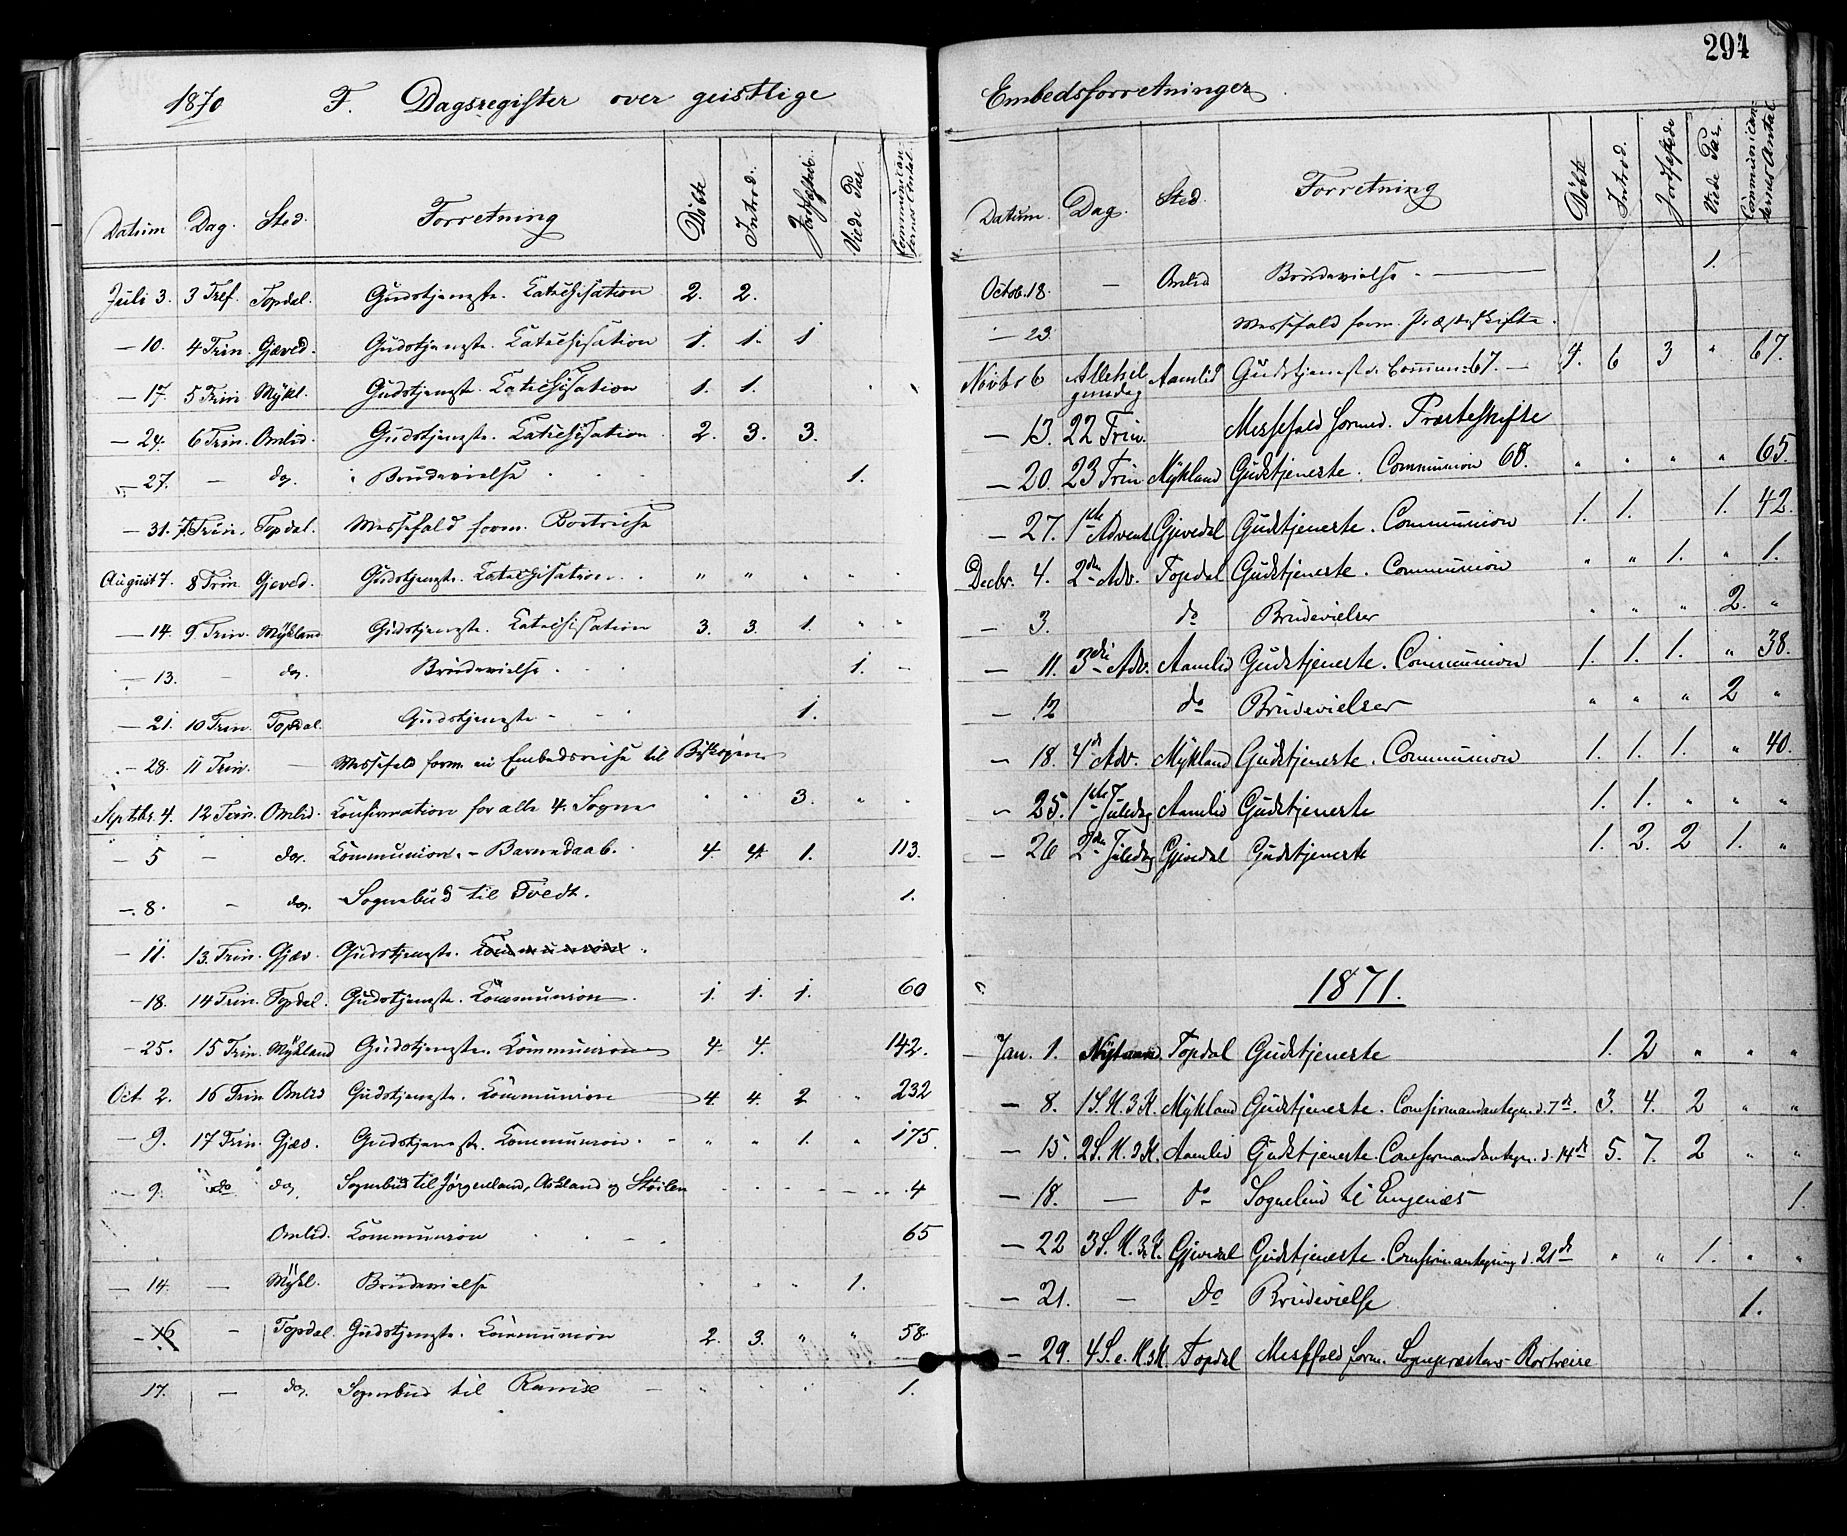 1870 F. Dagsregister over geistlige
Datum Dag. Sted. Forretning Döbte Introd. Jordfæstede. Viede Par. Communicanternes Antal.
Juli 3. 3 Tref. Topdal. Gudstjeneste. Catechisation 2. 2.
— 10. 4 Trin. Gjæved. Gudstjeneste. Catechisation 1. 1. 1
— 17. 5 Trin Mÿkl. Gudstjeneste. Catechisation 1. 1.
— 24. 6 Trin. Omlid. Gudstjeneste. Catechisation 2. 3. 3.
— 27. — do. Brudevielse 1.
— 31. 7. Trin. Topdal. Messefald form. Bortreise
August 7. 8 Trin. Gjeved. Gudstjeneste. Catechisation " " " " "
— 14. 9. Trin. Mÿkland Gudstjeneste. Catechisation 3. 3. 1. " "
— 13. — do. Brudevielse 1. —
— 21. 10 Trin. Topdal. Gudstjeneste 1.
— 28. 11 Trin. — Messefald form. en Embedsreise til Biskopen
Septbr. 4. 12 Trin. Omlid. Confirmation for alle 4. Sogne " " 3. " "
— 5 — do. Communion. — Barnedaab. 4. 4. 1. 113.
— 8. — do. Sognebud til Tvedt. 1.
— 11. 13. Trin. Gjæv. Gudstjeneste. Communion.
— 18. 14 Trin. Topdal. Gudstjeneste. Communion 1. 1. 1. 60
— 25. 15 Trin. Mÿkland Gudstjeneste. Communion 4. 4. 142.
Oct. 2. 16 Trin Omlid Gudstjeneste. Communion 4. 4. 2 " 232
— 9. 17 Trin. Gjæv. Gudstjeneste. Communion. " " 1. " 175.
— 9. do do. Sognebud til Jørgenland, Askland og Stöilen 4
Omlid. Communion 65
— 14. — Mÿkl. Brudevielse " " " 1.
— 16 — Topdal. Gudstjeneste. Communion 2. 3. " " 58.
17. — do. Sognebud til Ramse " " " 1.
294
Embedsforretninger
Datum. Dag. Sted. Forretning Döbte Introd. Jordfæstede Viede Par. Communicanternes Antal
Octob. 18. — Omlid Brudevielse. 1.
— 23. Messefald form. Præsteskifte.
Novbr 6 Allehelgensdag Aamlid Gudstjeneste. Commun: 67. 4. 6 3 " 67.
— 13. 22 Trin. Messefald formed. Præsteskifte
— 20. 23 Trin Mÿkland Gudstjeneste. Communion 68. " " " " 65.
— 27. 1ste Advent Gjevedal Gudstjeneste. Communion 1. 1. 1. 42.
Decbr. 4. 2den Adv. Topdal Gudstjeneste. Communion " " 1. " 1.
— 3. do Brudevielser " " " 2. "
— 11. 3die Adv. Aamlid Gudstjeneste. Communion 1. 1. 1. " 38.
— 12 do Brudevielser " " " 2 "
— 18. 4de Adv. Mÿkland Gudstjeneste. Communion 1. 1. 1. " 40.
— 25. 1ste Juledag Aamlid Gudstjeneste 1. 1. " " "
— 26 2den Juledag Gjevedal Gudstjeneste 1. 2. 2 1. "
1871.
Jan. 1. Topdal Gudstjeneste 1. 2 " " "
— 8. 1 S. H. 3 K. Mÿkland Gudstjeneste. Confirmandantegn. d. 7de. 3. 4. 2 " "
— 15. 2 S. H. 3 K. Aamlid Gudstjeneste. Confirmandantegn. d. 14de 5. 7. 2 " "
— 18. — do Sognebud til Engenæs 1.
— 22 3 S. H. 3 K. Gjevedal Gudstjeneste. Confirmantegning d. 21de " " 1. " "
— 21. — Do Brudevielse 1.
— 29. 4 S. e. H 3 K Topdal Messfald form. Sognepræstens Bortreise